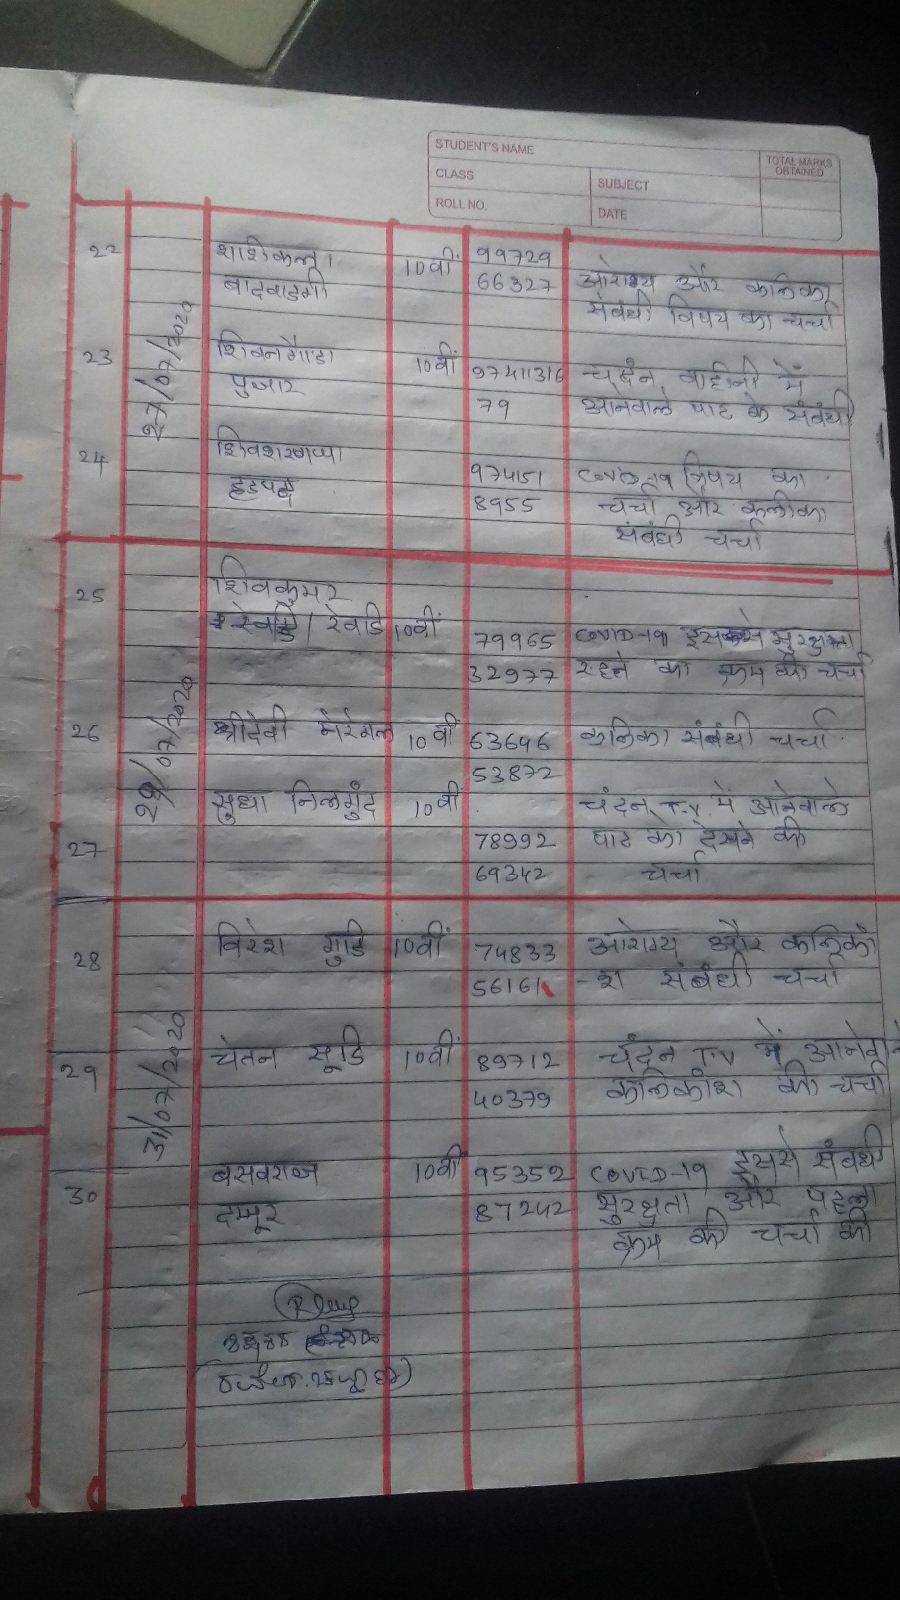 STUDENT'S NAME
TOTAL MARKS OBTAINED
CLASS
SUBJECT
ROLL NO.
DATE
22 शशिकला 10वीं 99729
बादवाडगी 66327 आरोग्य और कलिका
संबंधी विषय का चर्चा
27/07/2020
23 शिवनगौडा 10वीं 97411316 चंदन वाहीनी में
पुजार 79 आनेवाले पाठ के संबंधी
24 शिवशरणप्पा
हडपद 974151 COVID-19 विषय का
8955 चर्चा और कलीका
संबंधी चर्चा
25 शिवकुमार
रेवडि 10वीं 79965 COVID-19 इससे सुरक्षता
32977 रहने का क्रम की चर्चा
29/07/2020
26 श्रीदेवी मेरेगल 10वीं 63646 कलिका संबंधी चर्चा
53872
सुधा निलगुंद 10वीं चंदन T.V में आनेवाले
27 78992 पाठ को देखने की
69342 चर्चा
28 विरेश गुडि 10वीं 74833 आरोग्य और कलिको
56161 -श संबंधी चर्चा
31/07/2020
29 चेतन सूडि 10वीं 89712 चंदन T.V में
40379 कलिकांश की चर्चा
30 बसवराज 10वीं 95352 COVID-19 इससे संबंधी
दम्मूर 87242 सुरक्षता और पहला
क्रम की चर्चा की